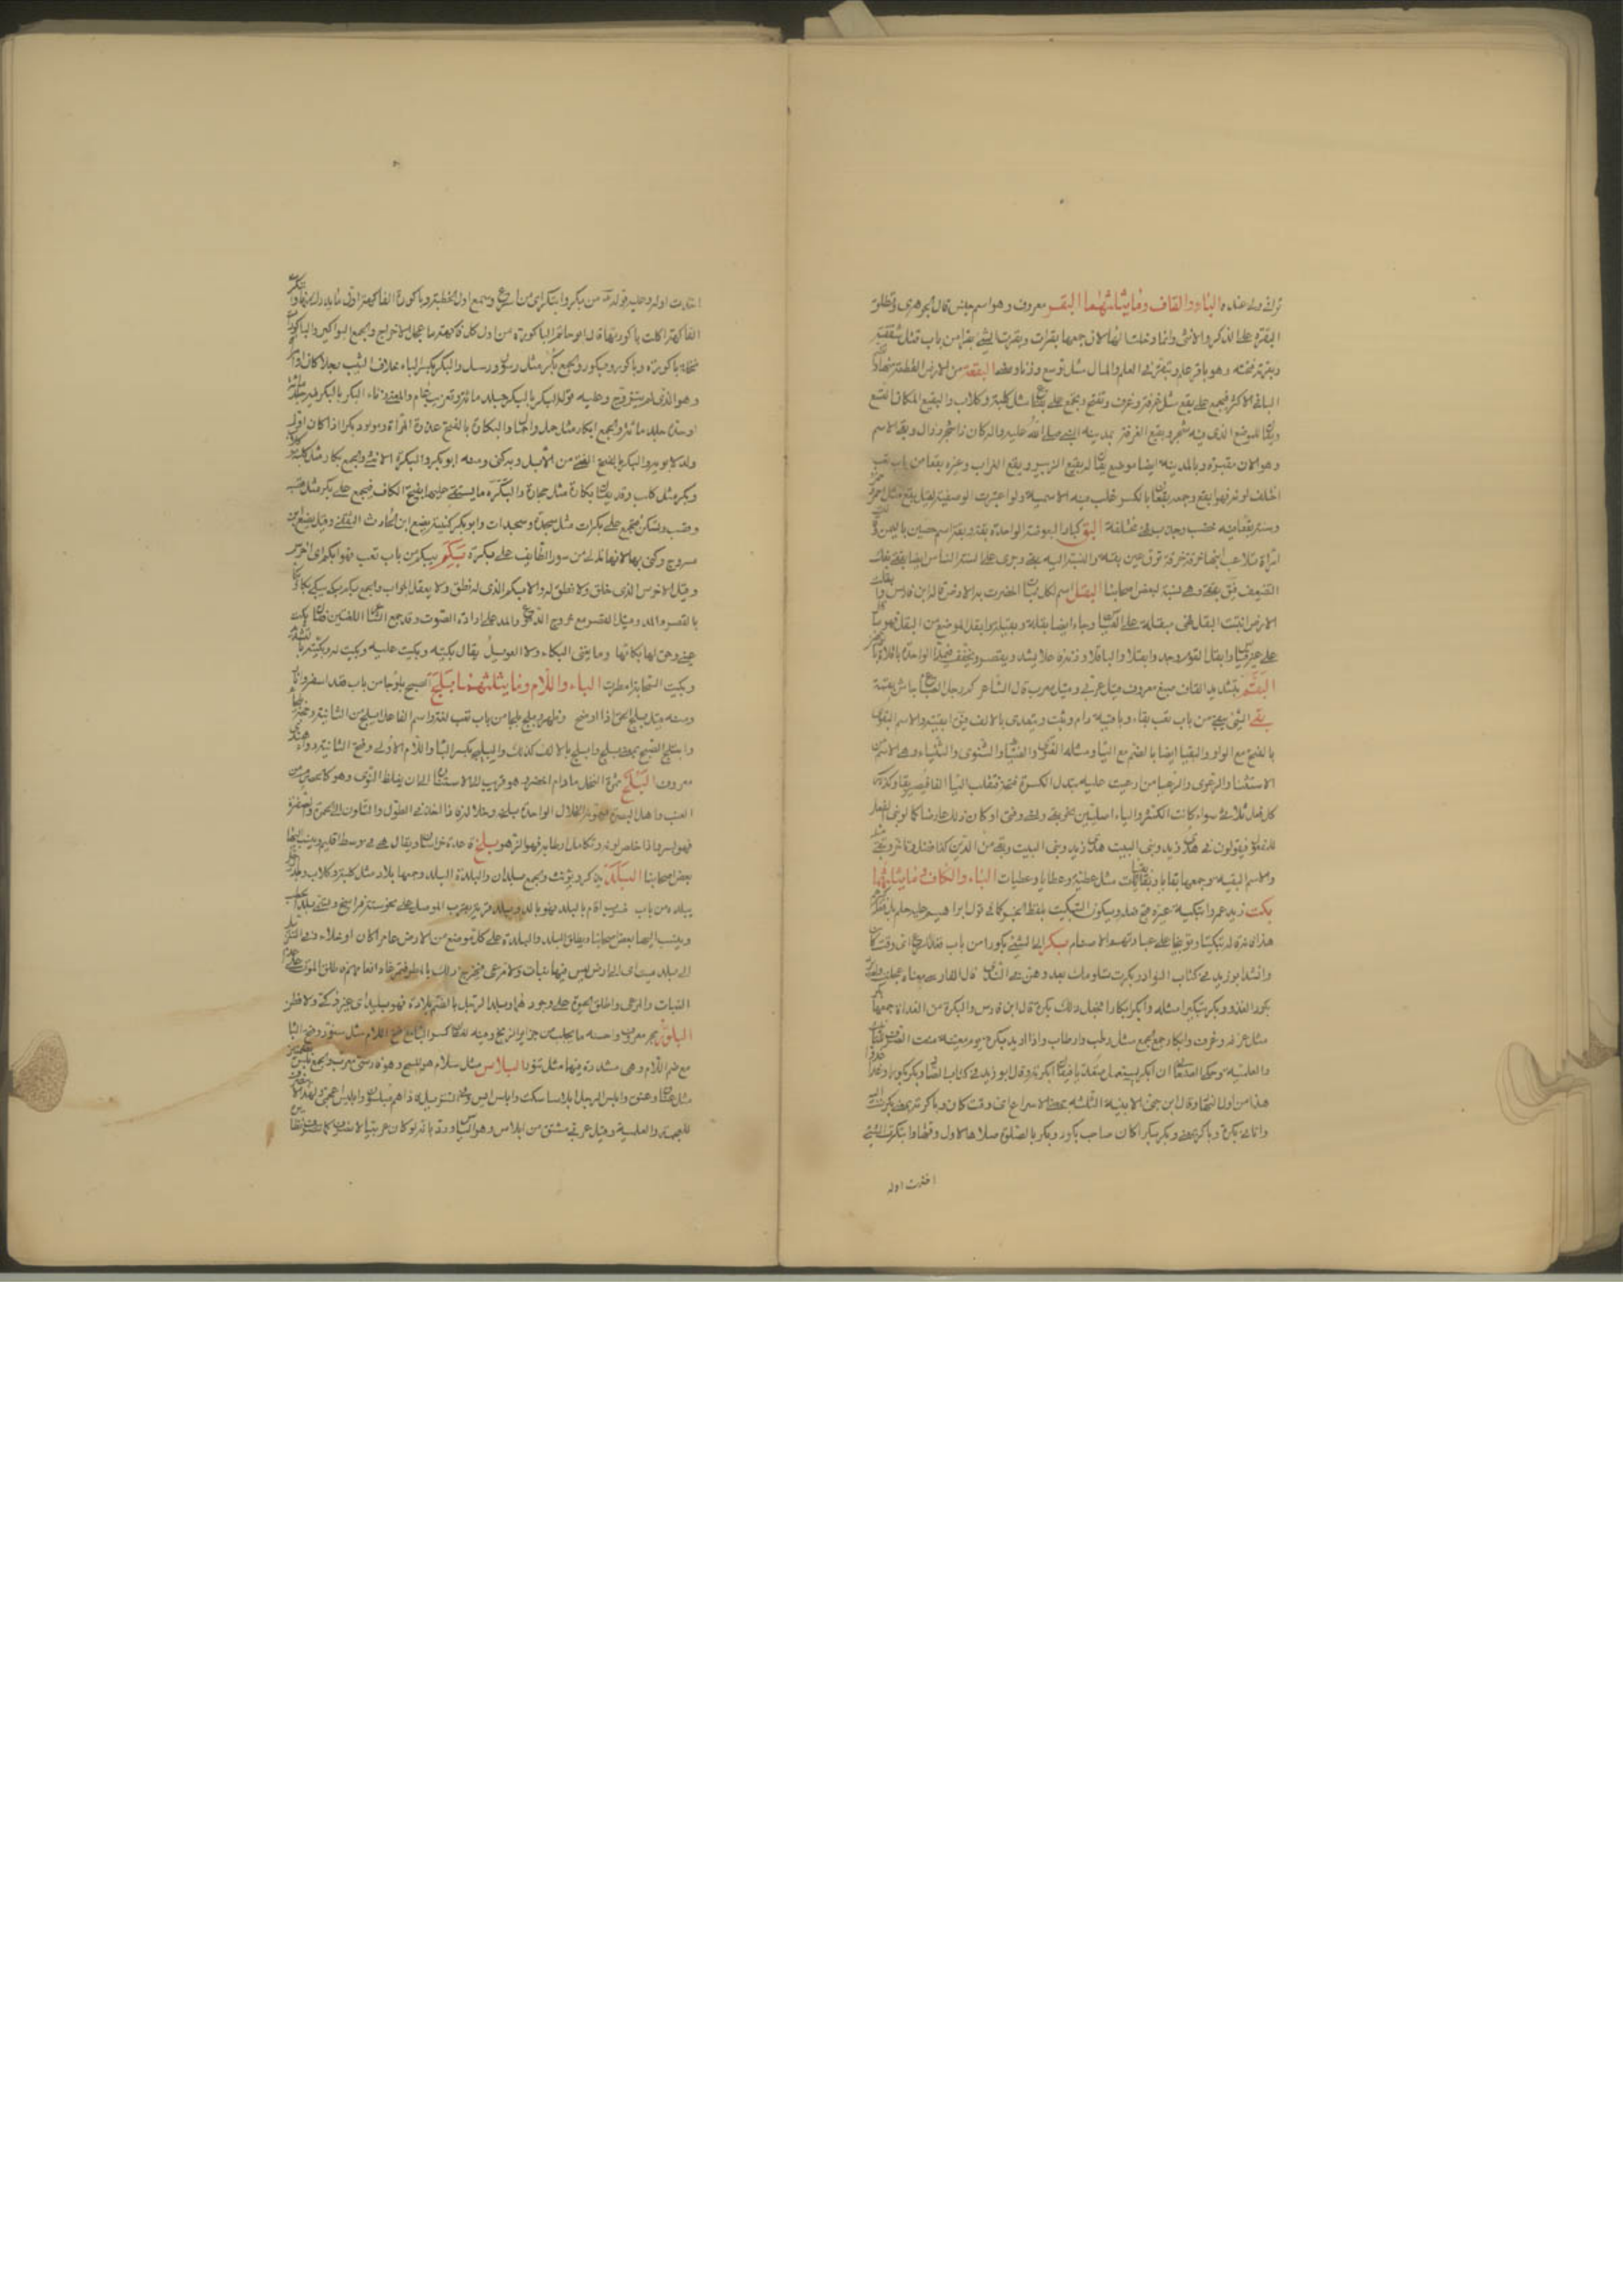 الباء والقاف وما يثلثهما البقر معروف وهو اسم جنس قال الجوهري وتطلق
البقرة على الذكر والانثى وانما دخلت الهاء لانه جمعها بقرات وبقرت الشئ بقرا من باب قتل شققته
وبقرته فتحته وهو باقر علم وتبقر في العلم والمال مثل توسع وزنا ومعنى البقعة من الارض القطعة منها
الباء في الاكثر فتجمع على بقع مثل غرفة وغرف وتفتح وتجمع على بقاع مثل كلبة وكلاب والبقيع المكان المتسع
ويقال الموضع الذي فيه شجر وبقيع الغرقد بمدينة النبي صلى الله عليه واله كان ذا شجر وزال وبقي الاسم
وهو الان مقبرة وبالمدينة ايضا موضع يقال له بقيع الزبير وبقع الغراب وغيره بقعا من باب تعب
اختلف لونه فهو ابقع وجمعه بقعان بالكسر غلب فيه الاسمية ولو اعتبرت الوصفية لقيل بقع مثل احمر
وسنة بقعاء فيه خصب وجدب فهي مختلفة البق كبار البعوض الواحدة بقة وبقة اسم حصين باليمن
امرأة تلاعب ابنها حزقة حزقة ترق عين بقة
البقل اسم لكل نبات اخضرت به الارض قاله ابن فارس
الارض انبتت البقل فهي مبقلة على القياس وجاء ايضا بقلة وبقيلة وابقل الموضع من البقل فهو باقل
على غير قياس وابقل القوم وجدوا بقلا والباقلا وزنه فاعلا يشدد ويقصر ويخفف فيمد الواحدة باقلاة
البقم بتشديد القاف صبغ معروف قيل عربي وقيل معرب قال الشاعر كمرجل الصباغ جاش بقمه
بقي الشئ يبقى من باب تعب بقاء وباقية دام وثبت ويتعدى بالالف فيق ابقيته والاسم البقوى
بالفتح مع الواو والبقيا ايضا بالضم مع الياء ومثله الفتوى والفتيا والثنوى والثنيا وهي الاسم من
الاستثنا والرعوى والرعيا من ارعيت عليه تبدل الكسرة فتحة فتقلب اليا الفا فيصير بقا وكذلك
كل فعل ثلاثي سواء كانت الكسرة والياء اصليتين نحو بقى ونسى وفنى او كان ذلك عارضا كما لو بني الفعل
للمفعول فيقولون في هدى زيد وبني البيت هدا زيد وبنا البيت وبقي من الدين كذا فضل وتاخر وتبقى
والاسم البقية وجمعها بقايا وبقيات مثل عطية وعطايا وعطيات الباء والكاف وما يثلثهما
بكت زيد عمروا تبكيتا عيره وقبح فعله ويكون التبكيت بلفظ الخبر كما في قول ابراهيم عليه السلم بل فعله كبيرهم
هذا فانه تبكيتا وتوبيخا على عبادتهم الاصنام بكر الى الشئ بكورا من باب قعد اسرع اي وقت كان
وانشد ابو زيد في كتاب النوادر بكرت تلومك بعد وهن في الندى قال الفارسي معناه عجلت
بكور الغدو وبكر تبكيرا مثله وابكر ابكارا فعل ذلك بكرة قال ابن فارس والبكرة من الغداة جمعها بكر
مثل غرفة وغرف وابكار جمع الجمع مثل رطب وارطاب واذا اريد بكرة يوم بعينه منعت الصرف
والعلمية وحكى الصغاني ان ابكر يستعمل متعديا فيقال ابكرته وقال ابو زيد في كتاب المصادر بكر بكورا وغدا غدوا
هذا من اول النهار وقال ابن جني الابنية الثلثة بمعنى الاسراع اي وقت كان وباكرته بمعنى بكرت اليه
واتانا بكرة وباكرا بمعنى وبكر ابكارا كان صاحب بكور وبكر بالصلوة صلاها لاول وقتها وابتكرت الشئ
اخذت اوله
اخذت اوله وعليه قوله من بكر وابتكر اي من اسرع وسمع اول الخطبة وباكورة الفاكهة اول ما يدرك منها وابتكرت
الفاكهة اكلت باكورتها قال ابو حاتم الباكورة من اول كل فاكهة ما عجل الاخراج والجمع البواكير والباكورات
نخلة باكورة وباكور وبكور والجمع بكر مثل رسول ورسل والبكر بكسر الباء خلاف الثيب رجلا كان او امرأة
وهو الذي لم يتزوج وعليه قوله البكر بالبكر جلد مائة وتغريب عام والمعنى زناء البكر بالبكر فيه جلد مائة
او حد جلد مائة والجمع ابكار مثل حمل واحمال والبكارة بالفتح عذرة المرأة ومولود بكر اذا كان اول
ولد لابويه والبكر بالفتح الفتى من الابل وبه كني ومنه ابو بكر والبكرة الانثى والجمع بكار مثل كلبة وكلاب
وبكر مثل كلب وقد يقال بكارة مثل حجارة والبكرة ما يستقى عليها بفتح الكاف فتجمع على بكر مثل قصبة
وقصب وتسكن فتجمع على بكرات مثل سجدة وسجدات وابو بكرة كنية نفيع ابن الحارث الثقفي وقيل نفيع بن
مسروح وكني بها لانه تدلى من سور الطايف على بكرة بكم يبكم من باب تعب فهو ابكم اي اخرس
وقيل الاخرس الذي خلق ولا نطق له والابكم الذي له نطق ولا يعقل الجواب والجمع بكم بكى يبكي بكا وبكاء
بالقصر والمد وقيل القصر مع خروج الدموع والمد على ارادة الصوت وقد جمع الشاعر اللغتين فقال بكت
عيني وحق لها بكاها وما يغني البكاء ولا العويل يقال بكيته وبكيت عليه وبكيت له وبكيته بالتشديد
وبكت السحابة امطرت الباء واللام وما يثلثهما بلج الصبح بلوجا من باب قعد اسفر وانار
ومنه قيل بلج الحق اذا اوضح وظهر وبلج بلجا من باب تعب لغة واسم الفاعل ابلج من الثانية
وابتلج الصبح بمعنى بلج وابلج بالالف كذلك والبليلج بكسر الباء واللام الاولى وفتح الثانية دواء هندي
معروف البلح ثمرة النخل ما دام اخضر وهو قريب الى الاستدارة الى ان يغلظ النوى وهو كالحصرم من
العنب واهل البصرة الخلال الواحدة بلحة وخلالة فاذا اخذ في الطول والتلون الى الحمرة والصفرة
فهو بسر واذا خلص لونه وتكامل ارطابه فهو الزهو بلخ قاعدة خراسان ويقال هي في وسط اقليم وينسب اليها
بعض اصحابنا البلد يذكر ويؤنث والجمع بلدان والبلدة البلد وجمعها بلاد مثل كلبة وكلاب وبلد
يبلد من باب ضرب اقام بالبلد فهو بالد وبلد قرية بقرب الموصل على نحو ستة فراسخ
وينسب اليها بعض اصحابنا ويطلق البلد والبلدة على كل موضع من الارض عامرا كان او خلاء وفي التنزيل
الى بلد ميت اي الى ارض ليس فيها نبات ولا مرعى فيخرج ذلك بالمطر فترعاه انعامهم فاطلق الموت على عدم
النبات والمرعى واطلق الحيوة على وجودهما وبلد الرجل بالضم بلادة فهو بليد اي غير ذكي ولا فطن
البلور حجر معروف واحسنه ما يجلب من جزاير الزنج وفيه لغتان كسر الباء مع فتح اللام مثل سنور وفتح الباء
مع ضم اللام وهي مشددة فيهما مثل تنور البلاس مثل سلام هو المسح وهو فارسي معرب والجمع بلس بضمتين
مثل عناق وعنق وابلس الرجل ابلاسا سكت وابلس ايس وفي التنزيل فاذا هم مبلسون وابليس اعجمي ولهذا لا ينصرف
للعجمة والعلمية وقيل عربي مشتق من الابلاس وهو الياس ورد بانه لو كان عربيا لانصرف كما ينصرف نظائره